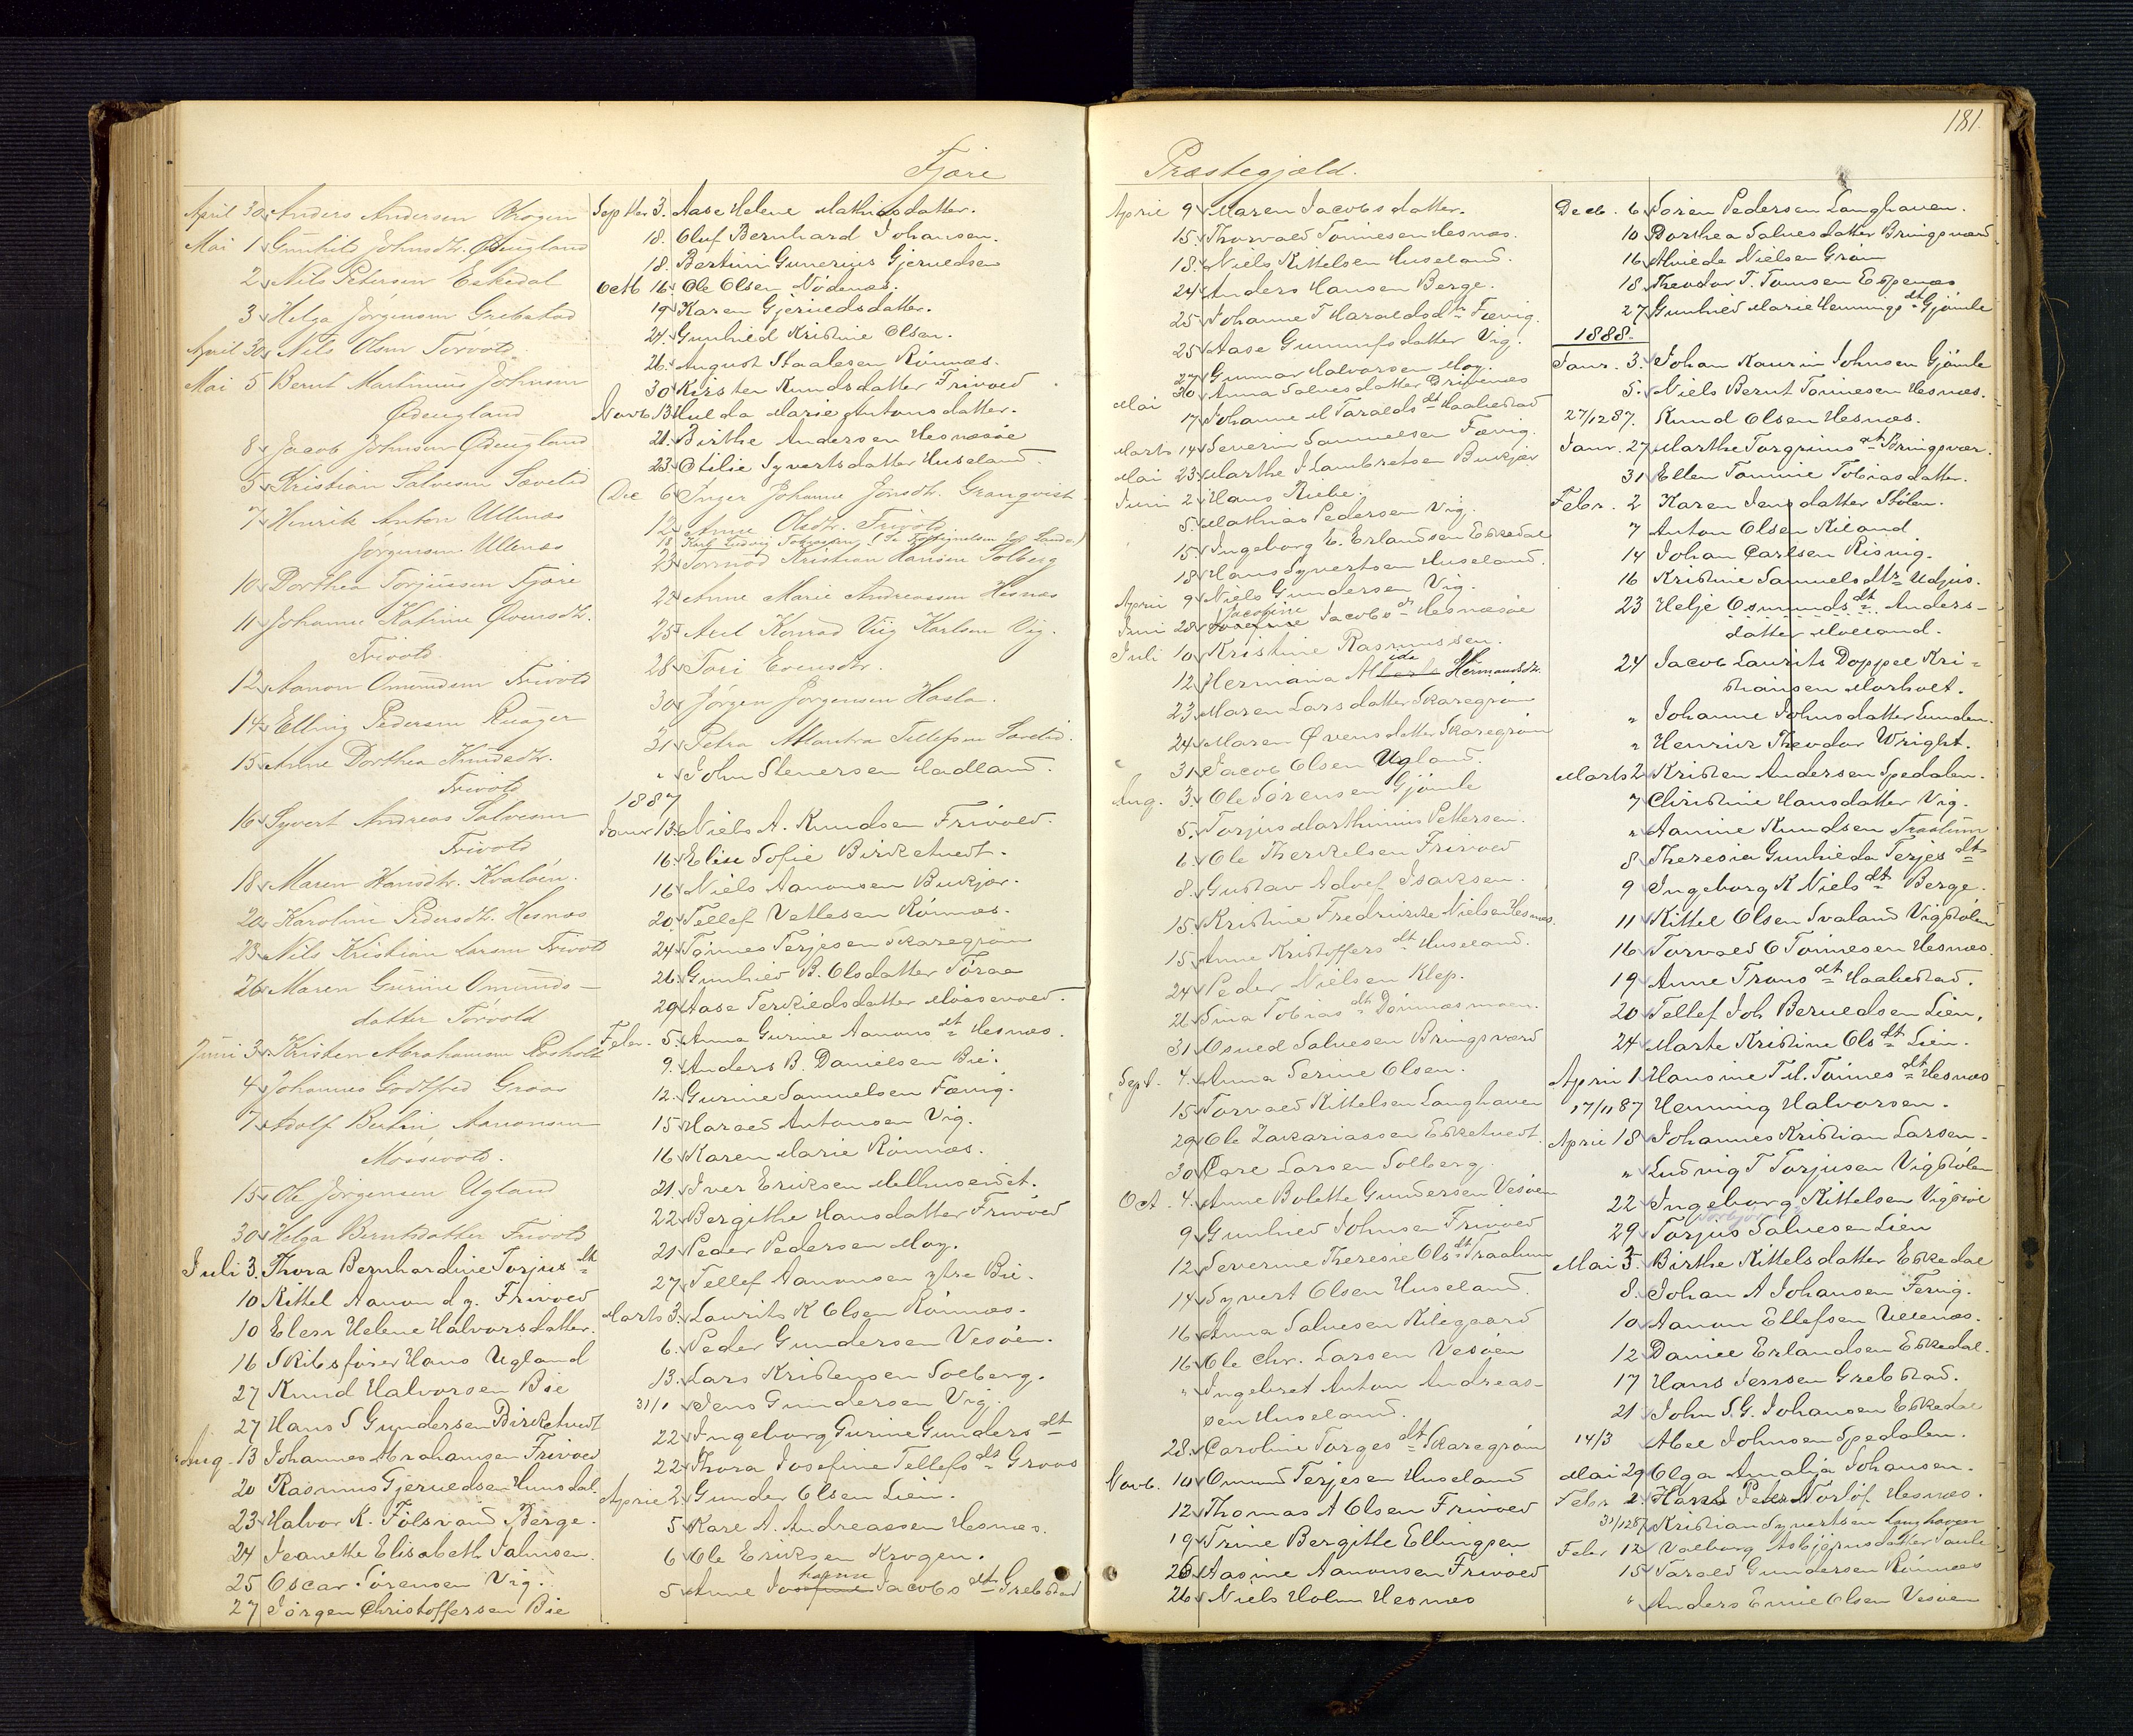 181.
Fjære
Præstegjæld.
April 30 Anders Andersen Krogen
Mai 1 Gunhild Johnsdtr. Ødeugland
2 Nils Petersen Eskedal
3 Helga Jörgensen Grebstad
April 30 Nils Olsen Törvold
Mai 5 Bernt Martinius Johnsen
Ødeugland
8 Jacob Johnsen Ødeugland
5 Kristian Salvesen Sævelid
7 Henrik Anton Ullenæs
Jörgensen Ullenæs
10 Dorthea Torjussen Fjære
11 Johanne Katrine Øvensdtr.
Frivold
12 Aanon Omundsen Frivold
14 Elling Pedersen Ruager
15 Anne Dorthea Knudsdtr.
Frivold
16 Syvert Andreas Salvesen
Frivold
18 Maren Hansdtr. Kvaløen.
20 Karoline Pedersdtr. Hesnæs
23 Nils Kristian Larsen Frivold
26 Maren Gurine Omunds-
datter Törvold
Juni 3 Kristen Abrahamsen Rosholt
4 Johannes Godtfred Groos
7 Adolf Bertin Aanonsen
Mössvold.
15 Ole Jörgensen Ugland
30 Helga Berntsdatter Frivold
Juli 3. Thora Bernhardine Torjus dt
10 Kittel Aanon d.y. Frivold
10 Elen Helene Halvorsdatter.
16 Skibsfører Hans Ugland
27 Knud Halvorsen Bie
27 Hans S Gundersen Birketvedt
Aug. 13 Johannes Abrahamsen Frivold
20 Rasmus Gjeruldsen Hunsdal.
23 Halvor K. Fölsvand Berge.
24 Jeanette Elisabeth Salmsen.
25 Oscar Sörensen Vig.
27 Jörgen Christoffersen Bie
Septbr 3. Aase Helene Mathiasdatter.
18. Oluf Bernhard Johansen.
18. Bertini Gunerius Gjeruldsen
Octb 16 Ole Olsen Nödenæs.
19 Karen Gjeruldsdatter.
24. Gunhild Kristine Olsen.
26. August Staalesen Rönnæs.
30 Kirsten Knudsdatter Frivold
Novb 13 Hulda Marie Antonsdatter.
21. Birthe Andersen Hesnæsöe
23. Otilie Syvertsdatter Huseland.
Dec 6 Inger Johanne Jonsdtr. Granqvist
12 Anne Olsdtr. Frivold.
18 Karl Ludvig
23 Tormod Kristian Hansen Solberg
22 Anne Marie Andreassen Hesnæs
25 Axel Konrad Viig Karlsen Vig.
28 Tori Evensdtr.
30 Jörgen Jörgensen Hasla.
31 Petra Atlantra Tellefsen Sævelid.
" John Stenersen Hadland.
1887
Janr 13 Niels A. Knudsen Frivold.
16. Elise Sofie Birketvedt.
16 Niels Aanonsen Bukjær.
20. Tellef Vetlesen Rönnæs.
24. Tönnes Terjesen Skaregrøm
26. Gunhild B. Olsdatter Töraa
29 Aase Terkildsdatter Moasevold.
Febr. 5. Anna Gurine Aanons dt Hesnæs.
9. Anders B. Danielsen Bie.
12. Gurine Samuelsen Fævig.
15 Harald Antonsen Vig.
16 Karen Marie Rönnæs.
21. Iver Eriksen Melhuseidet.
22 Bergithe Hansdatter Frivold
21 Peder Pedersen Moy.
27 Tellef Aanonsen ytre Bie.
Marts 3. Laurits K Olsen Rönnæs.
6. Peder Gundersen Vesöen.
13. Lars Kristensen Solberg.
31/1 Jens Gundersen Vig.
22 Ingeborg Gurine Gunders dt
22 Thora Josefine Tellefs dt Groos
April 2 Gunder Olsen Lien.
5 Karl A. Andreassen Hesnæs.
6 Ole Eriksen Krogen.
hanne
5 Anne Josefine Jacobs dt Grebstad
April 9 Maren Jacobsdatter.
15. Thorvald Tönnesen Hesnæs.
18. Niels Kittelsen Huseland.
24 Anders Hansen Berge.
25 Johanne T Haraldsdtr Fævig.
25 Aase Gunnufsdatter Vig.
27 Gunnar Halvorsen Moy.
30 Anna Salvesdatter Drivenes
Mai 17 Johanne M Taralds dt Haabestad
Marts 14 Severin Samuelsen Fævig.
Mai 23 Marthe I Lambretsen Bukjær
Juni 2 Hans Riebe.
5. Mathias Pedersen Vig.
15. Ingeborg E. Erlandsen Eskedal
18 Hans Syvertsen Huseland.
April 9 Niels Gundersen Vig.
Jacobine
Juni 28 Josefine Jacobs dt Hesnæsöe
Juli 10 Kristine Rasmussen.
ida
12 Hermania Al Hermandsdtr.
23. Maren Larsdatter Skaregrøm
24 Maren Øvensdatter Skaregrøm
31 Jacob Olsen Ugland.
Aug. 3. Ole Sörensen Gjömle
5. Torjus Marthinius Pettersen.
6. Ole Therkelsen Frivold
8. Gustav Adolf Isaksen.
15. Kristine Fredrikke Nielsen Hesnæs.
15. Anne Kristoffers dt Huseland.
24 Peder Nielsen Klep.
26 Sina Tobias dt Dömmesmoen.
31 Osuld Salvesen Bringsværd
Sept. 4. Anna Serine Olsen.
15 Torvald Kittelsen Langhaven
29 Ole Zakariassen Eskelvedt.
30 Carl Larsen Solberg
Oct. 4. Anne Bolette Gundersen Vesöen
9 Gunhild Johnsen Frivold
12 Severine Theresie Ols dt Traalum
14 Syvert Olsen Huseland.
16 Anna Salvesen Kilegaard
16 Ole Chr. Larsen Vesöen
" Ingebret Anton Andreas-
sen Huseland.
28. Caroline Torges dt Skaregrøm
Novb. 10 Omund Terjesen Huseland
12 Thomas A Olsen Frivold
19 Trine Bergitte Ellingsen
26 Aasine Aanonsen Frivold
26 Niels Holm Hesnæs
Decb. 6 Sören Pedersen Langhaven.
10 Dorthea Salvesdatter Bringsværd
16 Alvilde Nielsen Gröm
18 Theodor T. Tomsen Espenæs
27 Gunhild Marie Hennings dt Gjömle
1888.
Janr. 3. Johan Kaurin Johnsen Gjömle
5. Niels Bernt Tönnesen Hesnæs.
27/12 87. Knud Olsen Hesnæs.
Janr. 27 Marthe Torgrims dt Bringsvær.
31 Ellen Tomine Tobiasdatter.
Febr. 2 Karen Jensdatter Stölen.
7 Anton Olsen Kiland
14 Johan Carlsen Risvig.
16 Kristine Samuelsdtr Udjus.
23 Helje Osmunds dt Anders-
datter Molland.
24 Jacob Laurits Doppel Kri-
stiansen Morholt.
" Johanne Johnsdatter Lunden.
" Henrik Theodor Wright.
Marts 2 Kristen Andersen Spedalen.
7 Christine Hansdatter Vig.
" Aanine Knudsen Traalum
8 Theresia Gunhilda Terjes dt
9 Ingeborg K Niels dt Berge.
11 Kittel Olsen Svaland Vigstölen
16 Torvald O Tönnesen Hesnæs.
19 Anne Trons dt Haabestad.
20 Tellef Joh Beruldsen Lien.
24 Marte Kristine Ols dt Lien.
April 1 Hansine T M. Tönnes dt Hesnæs
17/11 87 Henning Halvorsen.
April 18 Johannes Kristian Larsen.
" Ludvig T Torjusen Vigstölen
22 Ingeborg Kittelsen Vigstöl
Torbjörn
29 Torjus Salvesen Lien
Mai 3. Birthe Kittelsdatter Eskedal
8. Johan A Johansen Fevig.
10 Aanon Ellefsen Ullenæs.
12 Daniel Erlandsen Eskedal.
17 Hans Jenssen Grebstad.
21 John S. G. Johansen Eskedal
14/3 Abel Johnsen Spedalen.
Mai 29 Olga Amalja Johansen.
Febr 2. Hans Peder Torlöf Hesnæs.
31/12 87 Kristian Syvertsen Langhaven
Febr 12 Valborg Asbjörnsdatter
15 Tarald Gundersen Rönnæs
" Anders Emil Olsen Vesöen